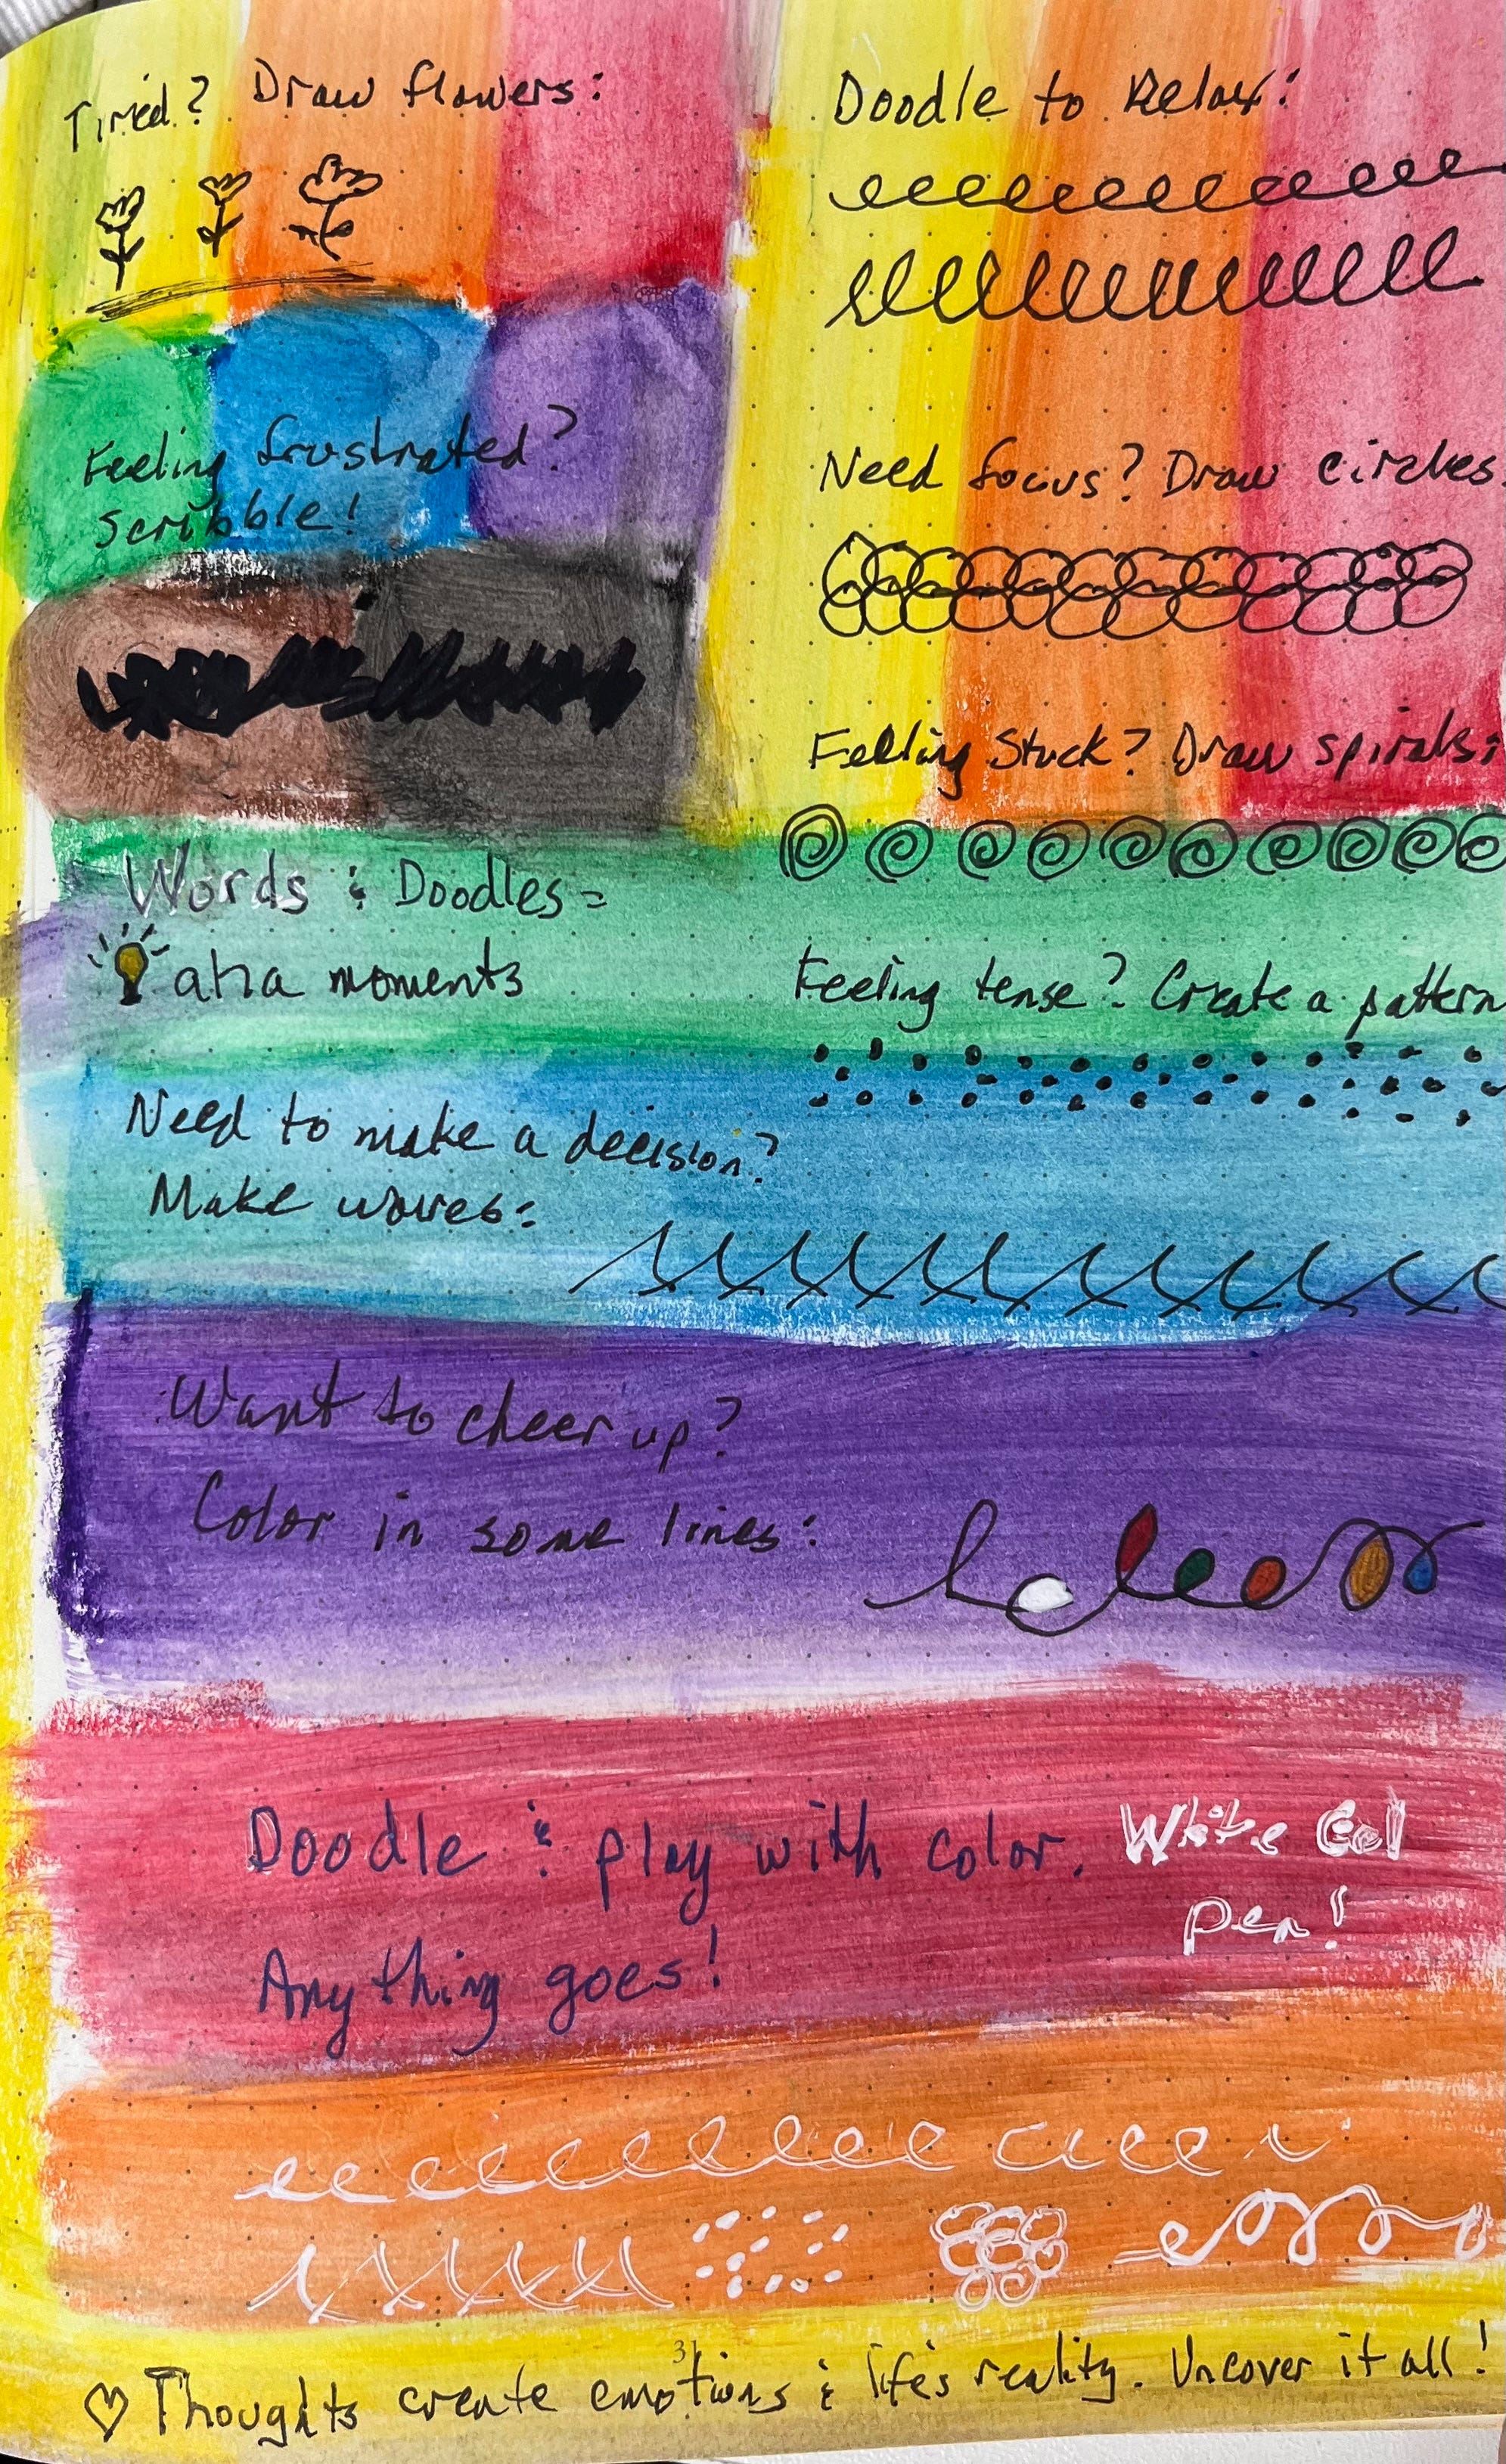 Tired? Draw flowers:
Feeling frustrated?
Scribble!
Words & Doodles =
aha moments
Doodle to Relax:
Need focus? Draw circles.
Feeling Stuck? Draw spirals:
Feeling tense? Create a pattern
Need to make a decision?
Make waves:
Want to cheer up?
Color in some lines:
Doodle & play with color.
Anything goes!
White Gel
Pen!
31
♡ Thoughts create emotions & life's reality. Uncover it all!